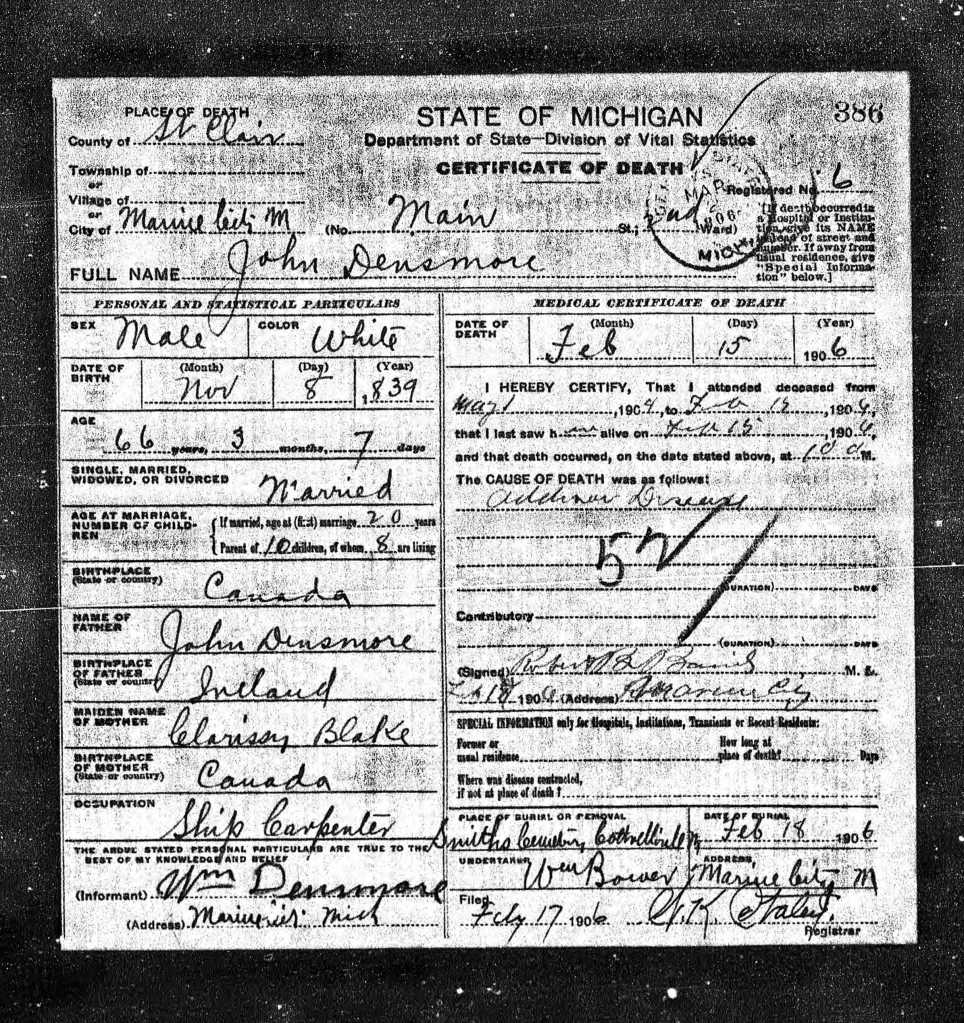 PLACE OF DEATH
STATE OF MICHIGAN
386
County of St Clair
Department of State—Division of Vital Statistics
Township of
or
CERTIFICATE OF DEATH
Village of
or
Registered No. 6
City of Marine City M (No. Main St.; 2nd Ward)
[If death occurred in a Hospital or Institution, give its NAME instead of street and number. If away from usual residence, give "Special Information" below.]
MAR 1906
MICH
FULL NAME John Densmore
PERSONAL AND STATISTICAL PARTICULARS
SEX Male COLOR White
DATE OF BIRTH (Month) Nov (Day) 8 (Year) 1839
AGE 66 years, 3 months, 7 days
SINGLE, MARRIED, WIDOWED, OR DIVORCED Married
AGE AT MARRIAGE, NUMBER OF CHILDREN
If married, age at (first) marriage 20 years
Parent of 10 children, of whom 8 are living
BIRTHPLACE (State or country) Canada
NAME OF FATHER John Densmore
BIRTHPLACE OF FATHER (State or country) Ireland
MAIDEN NAME OF MOTHER Clarissy Blake
BIRTHPLACE OF MOTHER (State or country) Canada
OCCUPATION Ship Carpenter
THE ABOVE STATED PERSONAL PARTICULARS ARE TRUE TO THE BEST OF MY KNOWLEDGE AND BELIEF
(Informant) Wm Densmore
(Address) Marine City Mich
MEDICAL CERTIFICATE OF DEATH
DATE OF DEATH (Month) Feb (Day) 15 (Year) 1906
I HEREBY CERTIFY, That I attended deceased from
May 1, 1904, to Feb 15, 1906,
that I last saw him alive on Feb 15, 1906,
and that death occurred, on the date stated above, at 10 a M.
The CAUSE OF DEATH was as follows:
Addison Disease
52
(DURATION) DAYS
Contributory
(DURATION) DAYS
(Signed) Robert M. D.
Feb 1906 (Address) Marine City
SPECIAL INFORMATION only for Hospitals, Institutions, Transients or Recent Residents:
Former or usual residence
How long at place of death? Days
Where was disease contracted, if not at place of death?
PLACE OF BURIAL OR REMOVAL Smiths Cemetery Cottrellville
DATE OF BURIAL Feb 18 1906
UNDERTAKER Wm Bower
ADDRESS Marine City M
Filed Feby 17 1906
Registrar